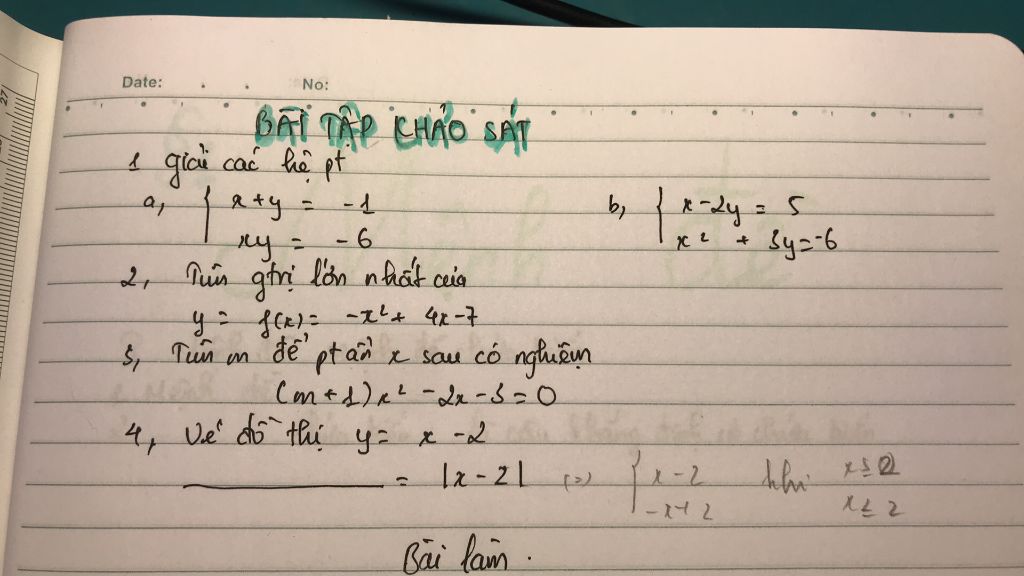 27
Date: No:
BÀI TẬP KHẢO SÁT
1 giải các hệ pt
a, { x+y = -1 b, { x-2y = 5
xy = -6 x² + 3y=-6
2, Tìm gtrị lớn nhất của
y = f(x) = -x² + 4x-7
3, Tìm m để pt ẩn x sau có nghiệm
(m+1)x² -2x-3=0
4, Vẽ đồ thị y= x -2
= |x-2| (=) { x-2 khi x≥2
-x+2 x≤2
Bài làm.